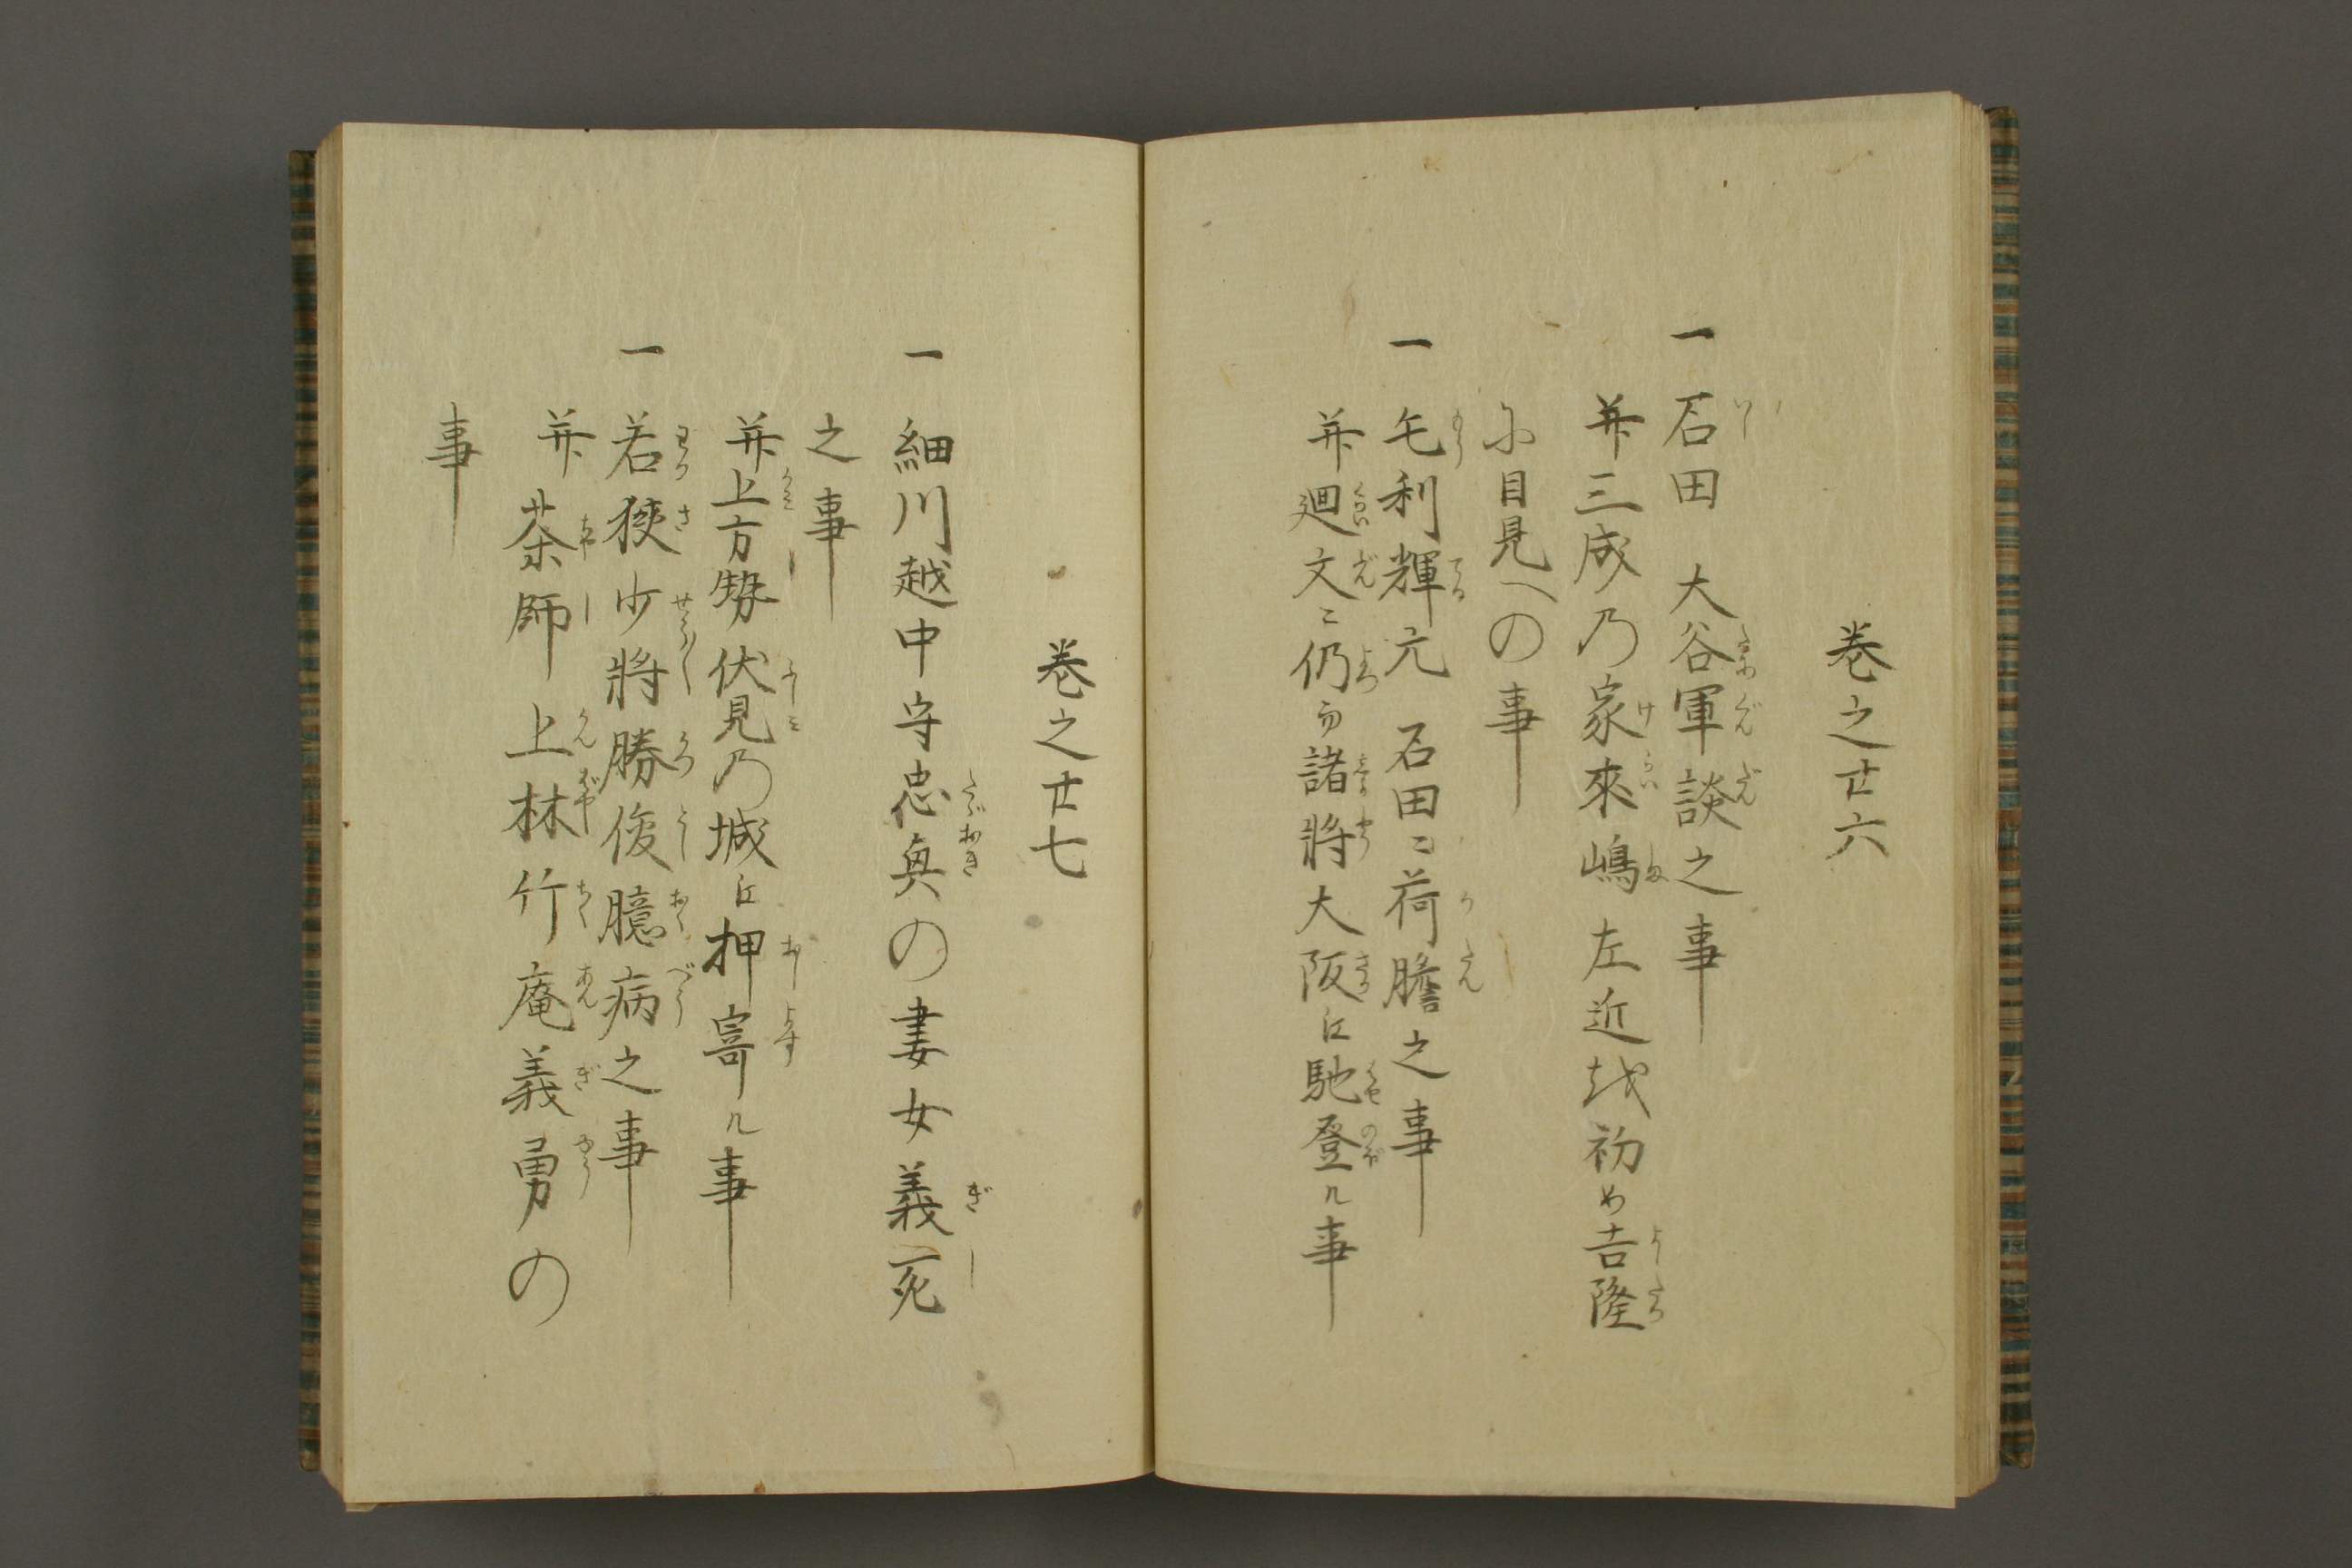 巻之廿六
一 石田 大谷軍談之事
并三成乃家來嶋左近越初め吉隆
に目見への事
一 毛利輝元 石田ニ荷膽之事
并廻文ニ仍而諸將大阪江馳登ル事
巻之廿七
一 細川越中守忠興の妻女義死
之事
并上方勢伏見乃城江押寄ル事
一 若狹少將勝俊臆病之事
并茶師上林竹庵義勇の
事